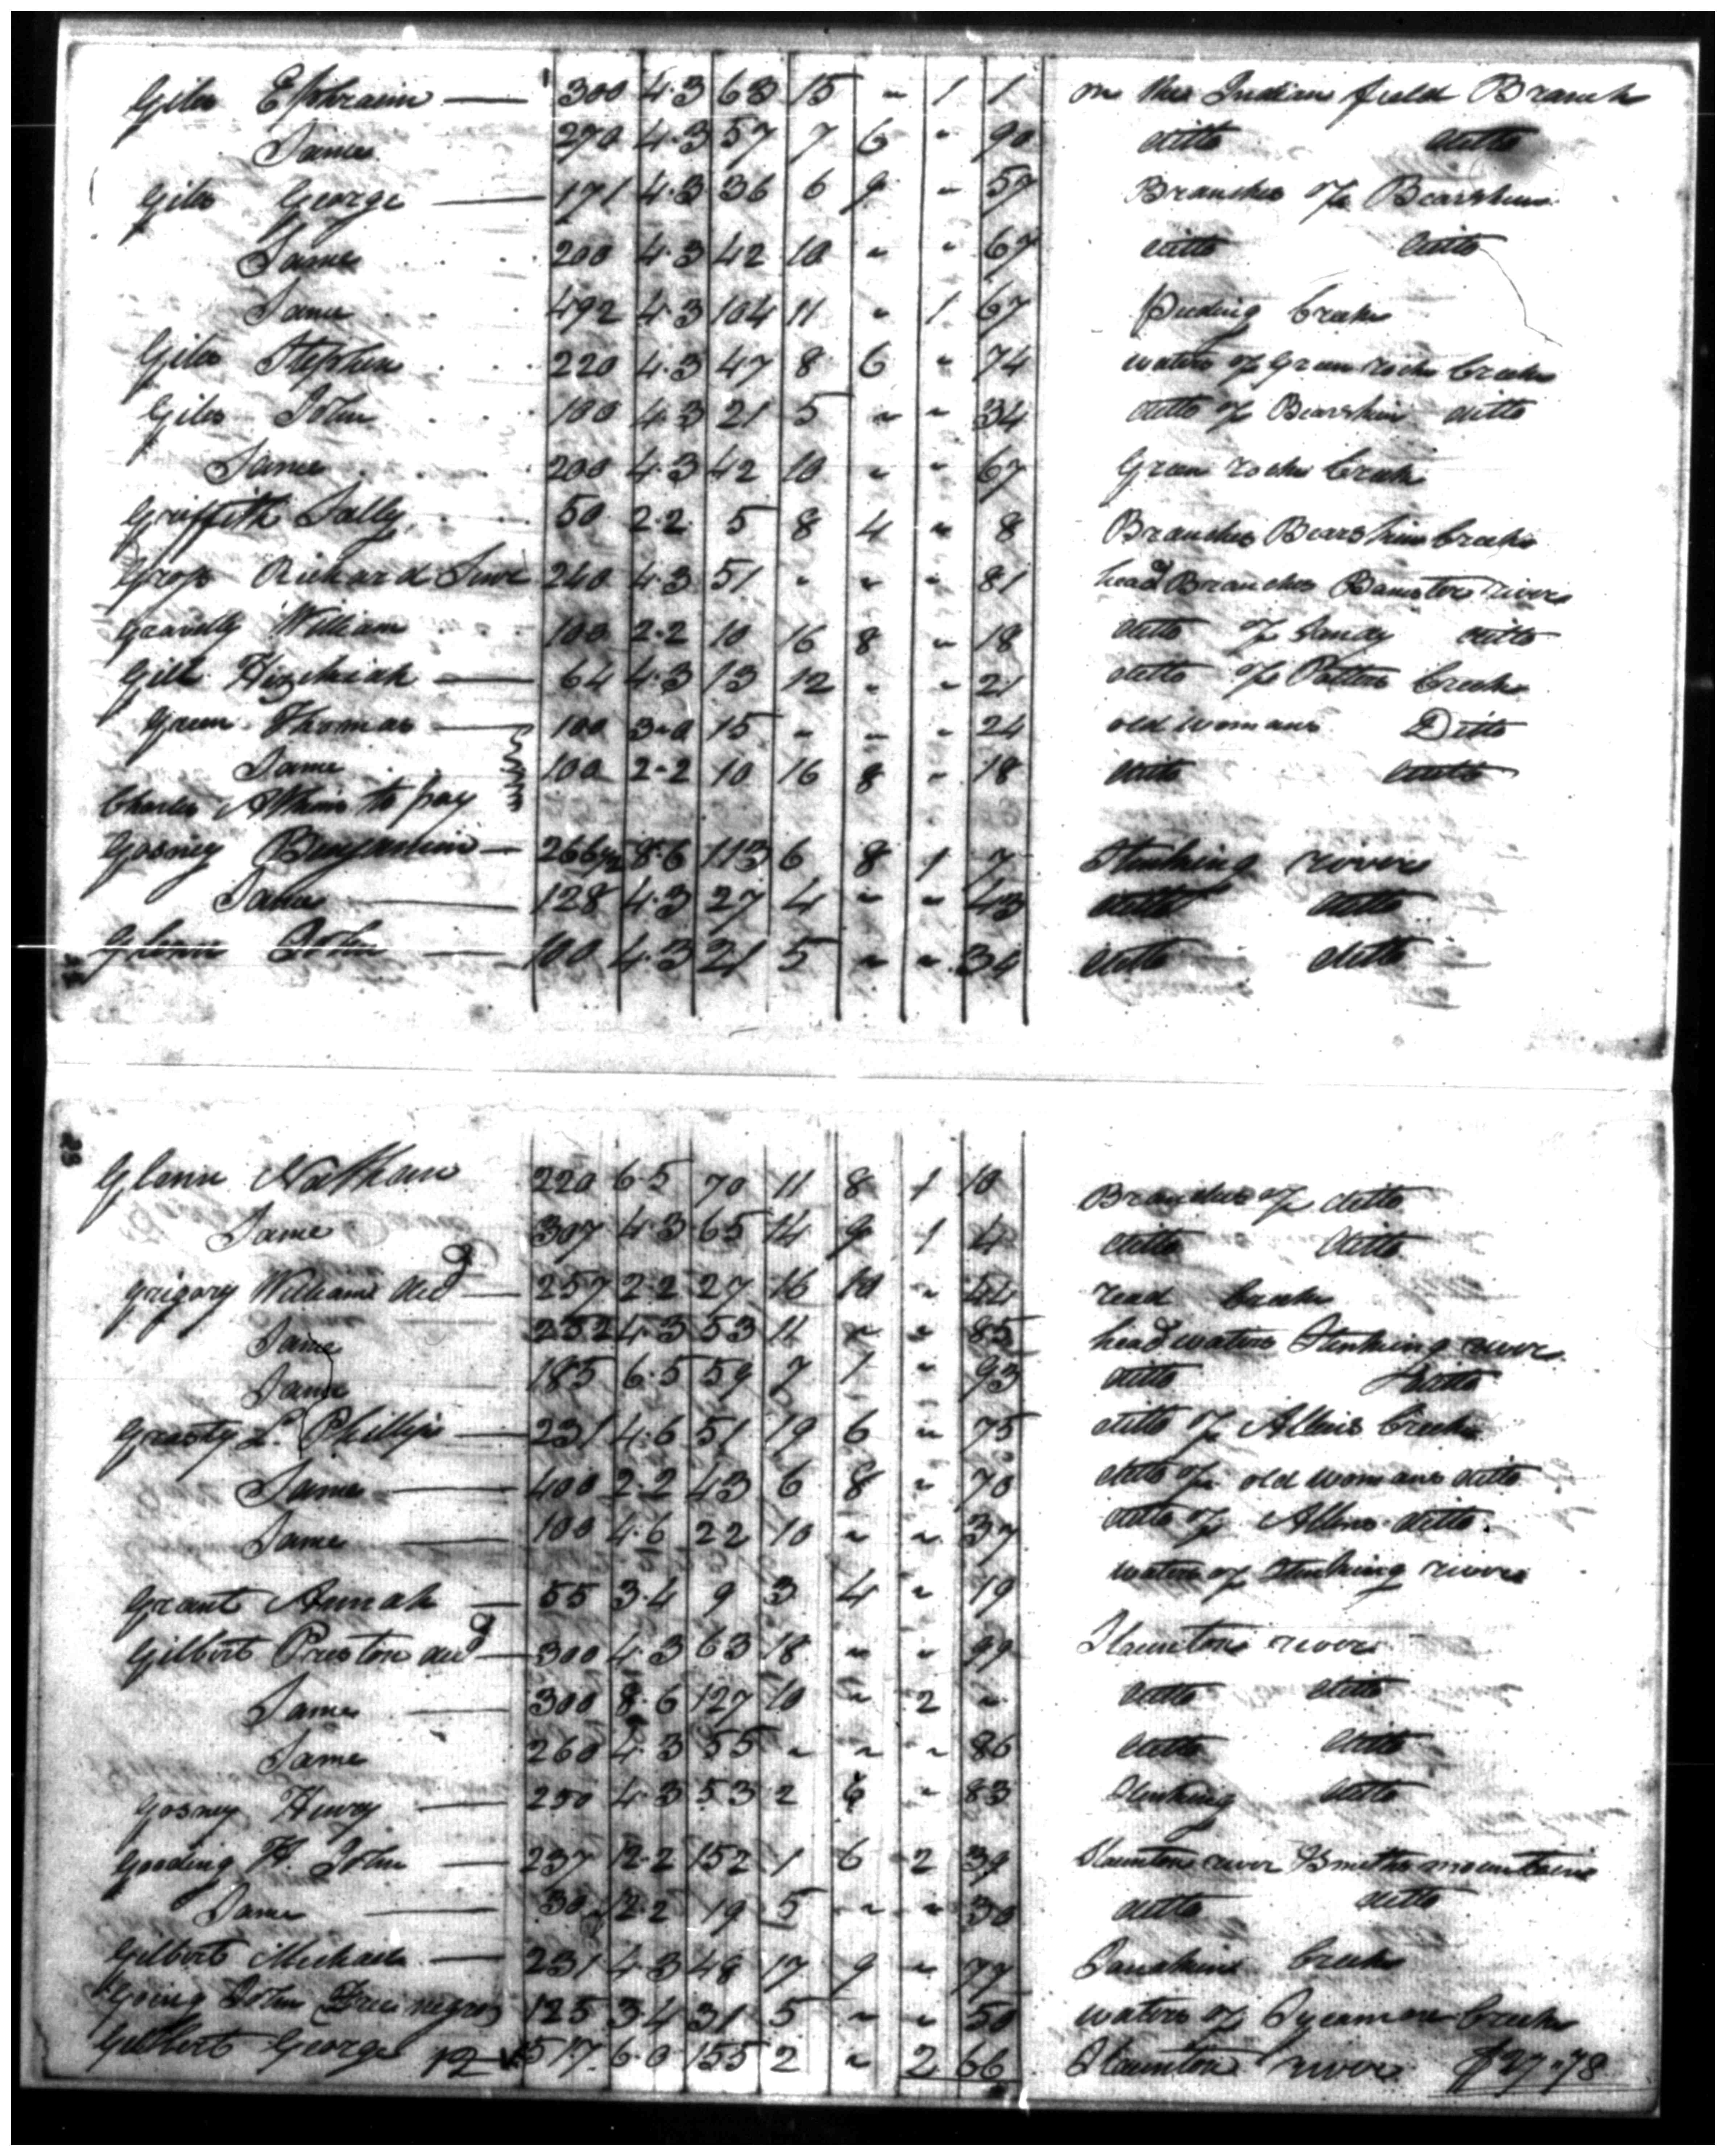 Giles Ephraim — 300 4.3 63 15 " 1 1 on the Indian field Branch
Same 270 4.3 57 7 6 " 90 ditto ditto
Giles George — 171 4.3 36 6 9 " 57 Branches of Bearskin
Same 200 4.3 42 10 " " 67 ditto ditto
Same 492 4.3 104 11 " 1 67 Puding Creek
Giles Stephen 220 4.3 47 8 6 " 74 waters of Green rock Creek
Giles John 100 4.3 21 5 " " 34 ditto of Bearskin ditto
Same 200 4.3 42 10 " " 67 Green rock Creek
Griffith Sally 50 2.2 5 8 4 " 8 Branches Bearskin Creek
Gross Richard Senr 240 4.3 51 " " " 81 head Branches Banister river
Gravelly William 100 2.2 10 16 8 " 18 ditto of Sandy ditto
Gill Hizekiah — 64 4.3 13 12 " " 21 ditto of Potters Creek
Green Thomas — 100 3-0 15 " " " 24 old womans Ditto
Same 100 2-2 10 16 8 " 18 ditto ditto
Charles Atkins to pay
Gosney Benjamin — 266½ 8.6 113 6 8 1 7 Stinking river
Same — 128 4.3 27 4 " " 43 ditto ditto
Glenn John — 100 4.3 21 5 " " 34 ditto ditto
Glenn Nathan 220 6.5 70 11 8 1 10 Branches of ditto
Same 307 4.3 65 14 9 1 4 ditto ditto
Grigory William decd — 257 2.2 27 16 10 " 44 read Creek
Same 252 4.3 53 11 " " 85 head waters Stinking river
Same 185 6.5 59 7 1 " 93 ditto ditto
Grasty L. Phillip — 231 4.6 51 19 6 " 75 ditto of Allins Creek
Same — 400 2.2 43 6 8 " 70 ditto of old womans ditto
Same — 100 4.6 22 10 " " 37 ditto of Allins ditto
Grant Annah — 55 3.4 9 3 4 " 19 waters of Stinking river
Gilbert Preston decd — 300 4.3 63 18 " " 99 Staunton river
Same — 300 8.6 127 10 " 2 " ditto ditto
Same 260 4.3 55 " " " 86 ditto ditto
Gosney Henry — 250 4.3 53 2 6 " 83 Stinking ditto
Gooding H. John — 237 12.2 152 1 6 2 39 Staunton river Smiths mountain
Same — 30 12.2 19 5 " " 30 ditto ditto
Gilbert Michael — 231 4.3 48 17 9 " 77 Creek
Going John Free negro 125 3.4 31 5 " " 50 waters of Sycamore Creek
Gilbert George 517 6.0 155 2 " 2 66 Staunton river $27.78